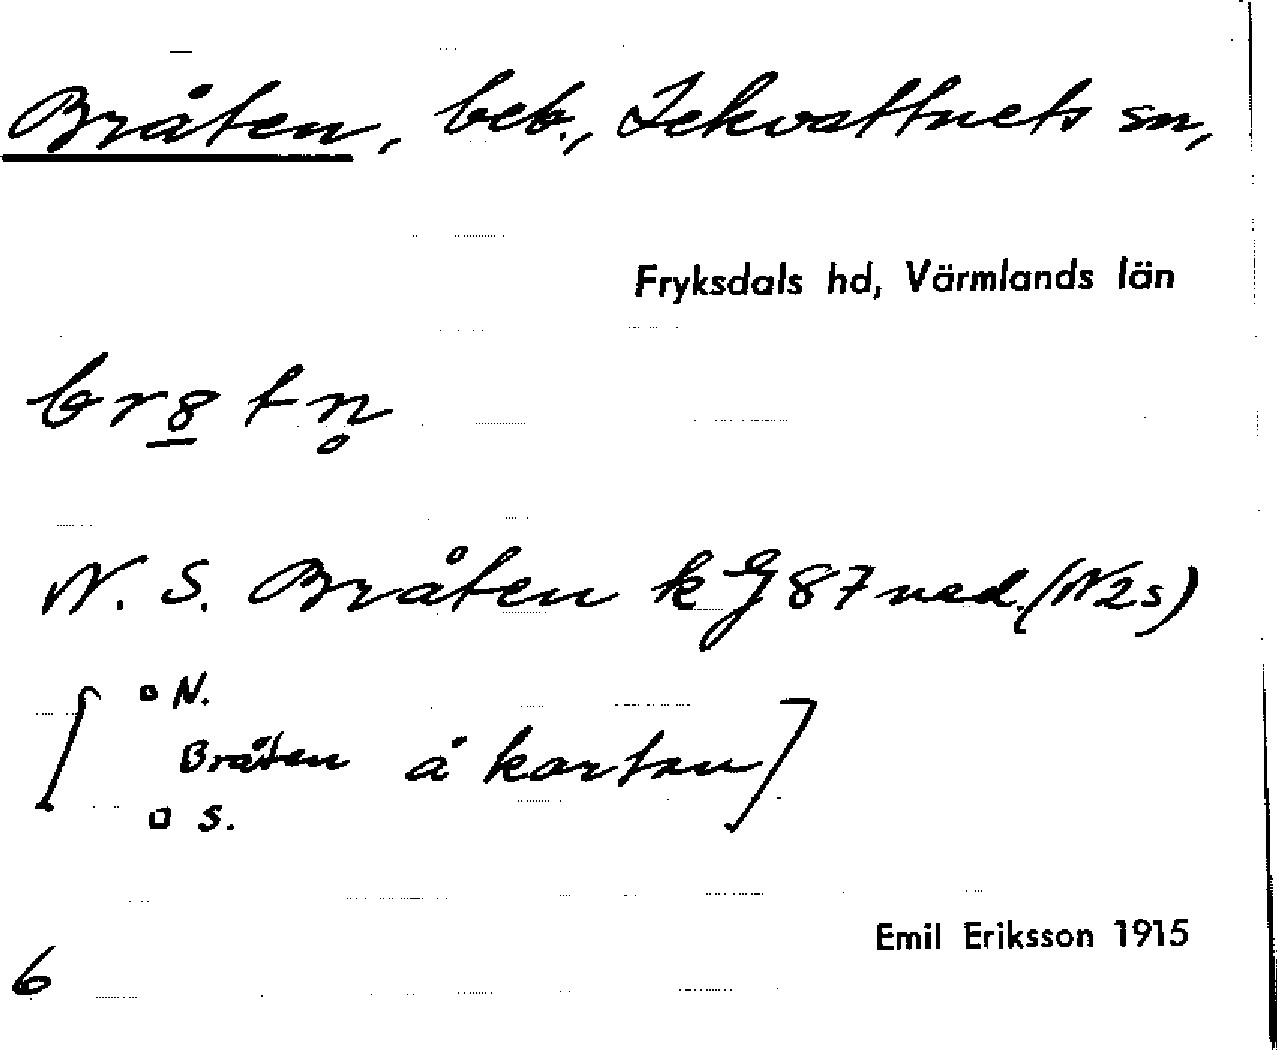 Bråten, beb., Lekvattnets sn,
Fryksdals hd, Värmlands län
br8tn̥
N. S. Bråten k G 87 ned. (N2s)
[ o N.
Bråten å kartan]
o S.
Emil Eriksson 1915
6